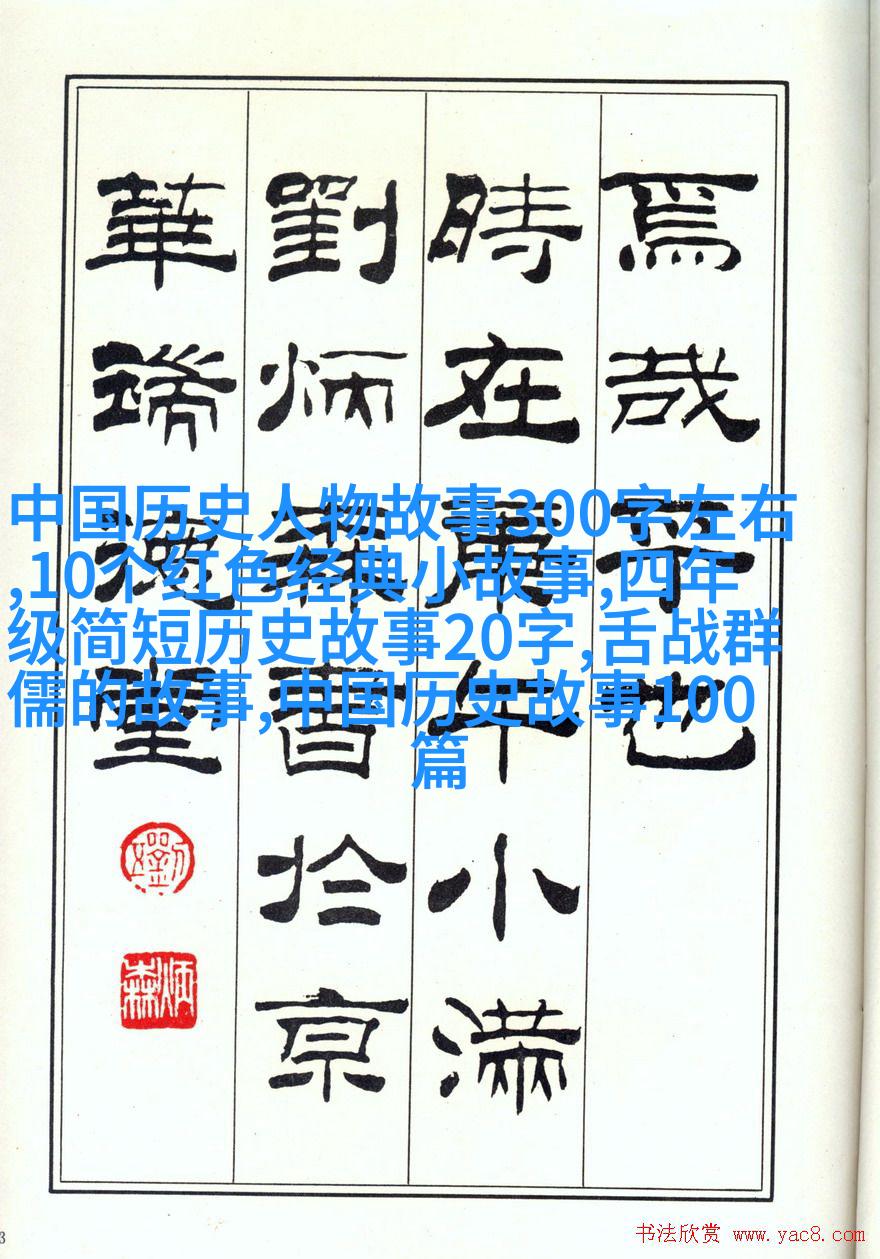 焉哉乎也
時在庚午小滿
劉炳森書於京
華
中国历史人物故事300字左右
,10个红色经典小故事,四年
级简短历史故事20字,舌战群
儒的故事,中国历史故事100
篇
炳森
书法欣赏 www.yac8.com
3